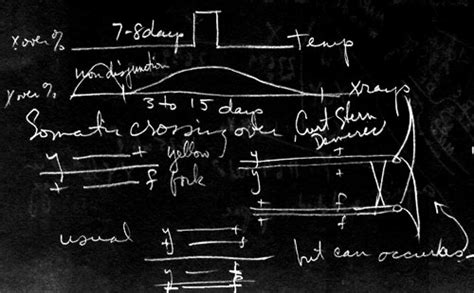 X over % 7-8 days Temp
nondisjunction
X over % Xrays
3 to 15 days
Somatic crossing over Curt Stern
Demerec
y + yellow y +
+ f fork y +
+ f
+ f
usual y + but can occur as
y +
y
+ f